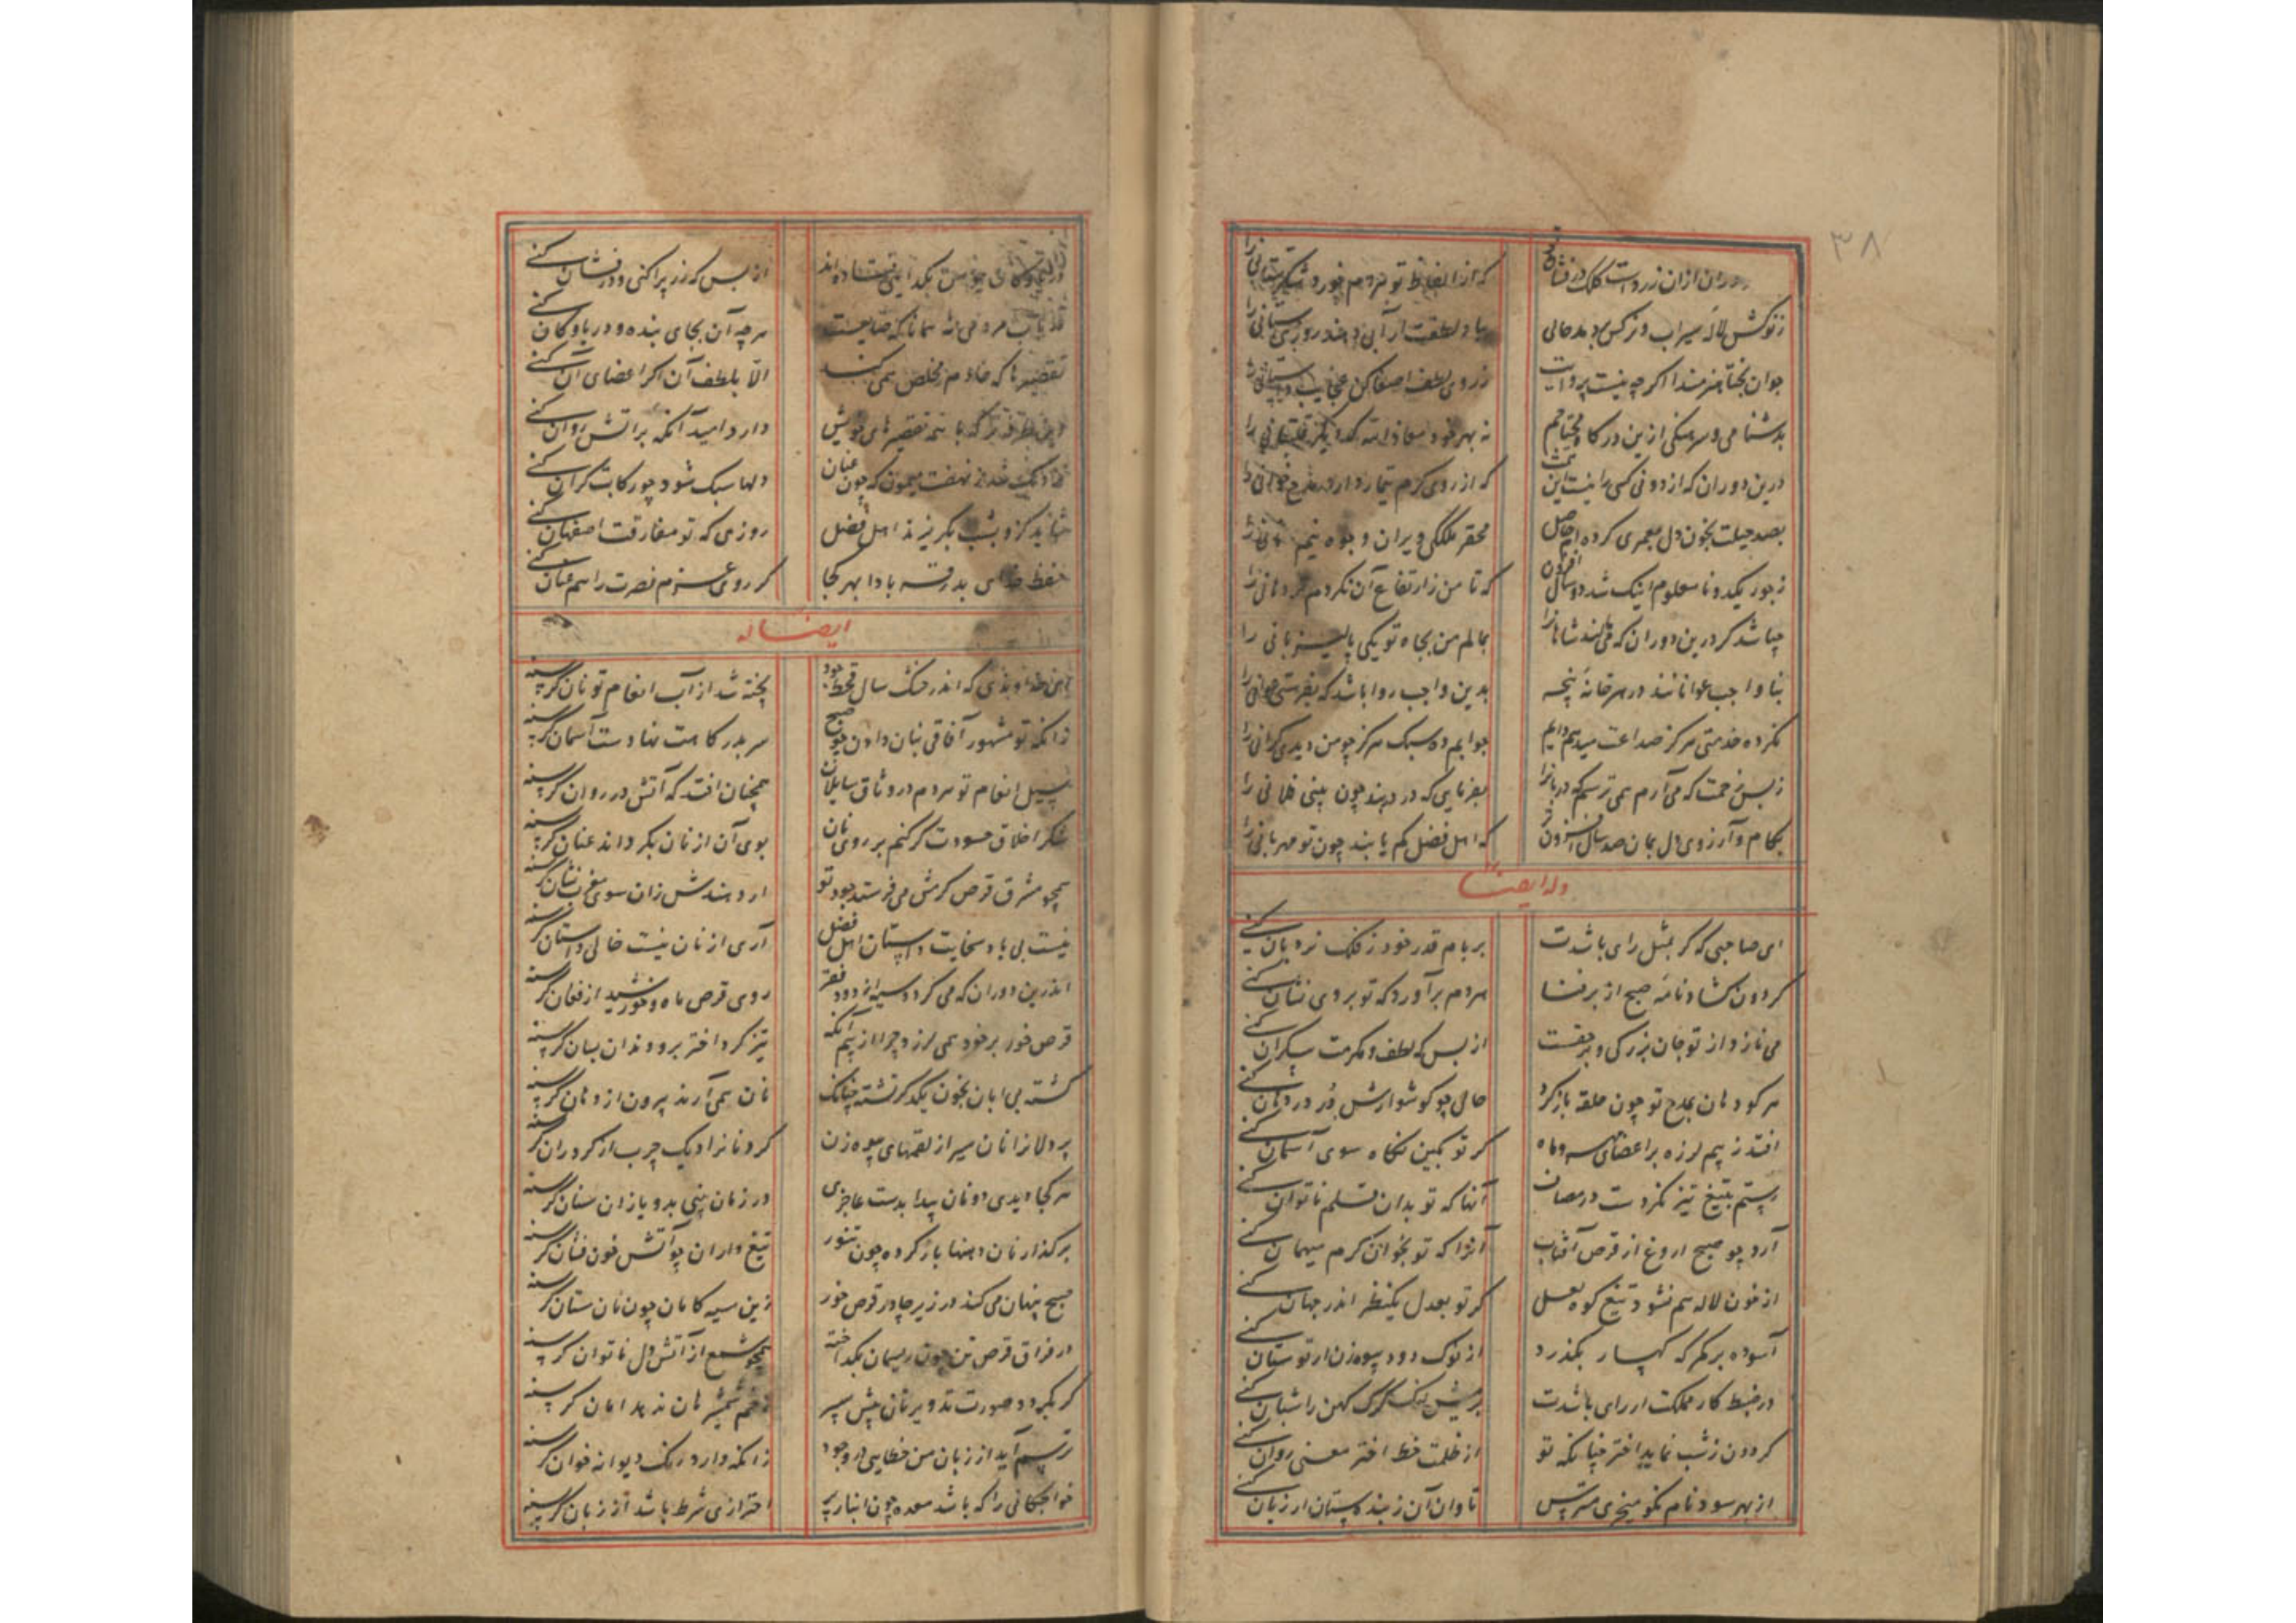 ۳۸
زنوکش لاله سیراب و نرکس بردمد حالی
جوان بختا هنرمندا اکر چه نیست پروایت
ز روی لطف اصغا کن عجایب داستانی را
بدشنامی و سرهنکی ازین درکاه محتاجم
درین دوران که از دونی کسی را نیست این
که از روی کرم تیمار دارد مدح خوانی را
بصد حیلت بخون دل معمری کرده ام حاصل
محقر ملککی ویران و جوه نیم نانی را
ز جور یکدو نامعلوم اینک شد دو سال افزون
که تا من ز ارتفاع آن نکردم تر دهانی را
چباشد کر درین دوران که
بمالم من بجاه تو یکی پالیزبانی را
بنا واجب عوانانند در هر خانهٔ پنجه
بدین واجب روا باشد که بفرستی عوانی را
نکرده خدمتی هرکز صداعت میدهم دایم
جوابم ده سبک هرکز چو من دیدی کرانی را
ز بس زحمت که می آرم همی ترسم که دربانرا
بفرمایی که در بندد چون بینی فلانی را
بکام و آرزوی دل بمان صد سال افزون تر
که اهل فضل کم یابند چون تو مهربانی را
وله ایضا
ای صاحبی که کر بمثل رای باشدت
بر بام قدر خود ز فلک نردبان کنی
کردون کشاد نامهٔ صبح از بر فضا
مردم برآورد که تو بر وی نشان کنی
می نازد از تو جان بزرکی و برحقست
از بس که لطف و مکرمت بیکران کنی
هر کو دهان بمدح تو چون حلقه باز کرد
حالی چو کوشوارش در در دهان کنی
افتد ز بیم لرزه بر اعضای مهر و ماه
کر تو بکین نکاه سوی آسمان کنی
رستم بتیغ تیز نکردست در مصاف
آنها که تو بدان قلم ناتوان کنی
آرد چو صبح اروغ از قرص آفتاب
آنرا که تو بخوان کرم میهمان کنی
از خون لاله هم نشود تیغ کوه لعل
کر تو بعدل یکنظر اندر جهان کنی
آسوده برکمر که کهسار بکذرد
از نوک دود بیوه زن ار توستان کنی
در ضبط کار مملکت ار رای باشدت
بر میش لنک کرک کهن را شبان کنی
کردون ز شب نماید اختر چنانکه تو
از ظلمت خط اختر معنی روان کنی
از بهر سود نام نکو میخری مترس
تاوان آن ز بنده ستان ار زیان کنی
از بس که زر پراکنی و درفشان کنی
هر چه آن بجای بنده و دریا و کان کنی
تقصیرها که خادم مخلص همی کند
الا بلطف آن اکر اغضای آن کنی
دارد امید آنکه براتش روان کنی
دلها سبک شود چو رکابت کران کنی
شاید کزو بشب بکریزند اهل فضل
روزی که تو مفارقت اصفهان کنی
حفظ خدای بدرقه بادا بهر کجا
کر روی عزم نصرت را هم عنان کنی
ایضا له
ای خداوندی که اندر خشک سال قحط جود
پخته شد از آب انعام تو نان کرسنه
زانکه تو مشهور آفاقی بنان دادن چو صبح
سر بدرکاهت نهادست آسمان کرسنه
سیل انعام تو مردم در وثاق سایلان
همچنان افتد که آتش در روان کرسنه
شکر اخلاق حسودت کر کنم بر روی نان
بوی آن از نان بکرداند عنان کرسنه
همچو مشرق قرص کرمش می فرستد جود تو
ار دهندش زان سوی مغرب نشان کرسنه
نیست بی یاد سخایت داستان اهل فضل
آری از نان نیست خالی داستان کرسنه
اندرین دوران که می کردد سیه از دود فقر
روی قرص ماه و خورشید از فغان کرسنه
قرص خور بر خود همی لرزد چرا از بیم آنکه
تیز کرد اختر برو دندان بسان کرسنه
کشته بی ابان بخون یکدکر تشنه چنانک
نان همی آرند بیرون از دهان کرسنه
پر دلانرا نان سیر از لقمهای بیوه زن
کردنانرا دیک چرب از کردران کرسنه
هر کجا دیدی دو نان پیدا بدست عاجزی
در زمان بینی بدو یازان سنان کرسنه
بر کذار نان دهنها باز کرده چون تنور
تیغ داران چو آتش خون فشان کرسنه
صبح پنهان می کند در زیر چادر قرص خور
زین سیه کامان چون نان ستان کرسنه
در فراق قرص تن چون ریسمان بکداخته
همچو شمع از آتش دل ناتوان کرسنه
کر بکیرد صورت تدویر نان پیش سپر
زخم شمشیر هان ندهد امان کرسنه
ترسم آید از زبان من خطایی در وجود
زانکه دارد رنک دیوانه خوان کرسنه
خواجکانی را که باشد معده چون انبار پر
احترازی شرط باشد از زبان کرسنه